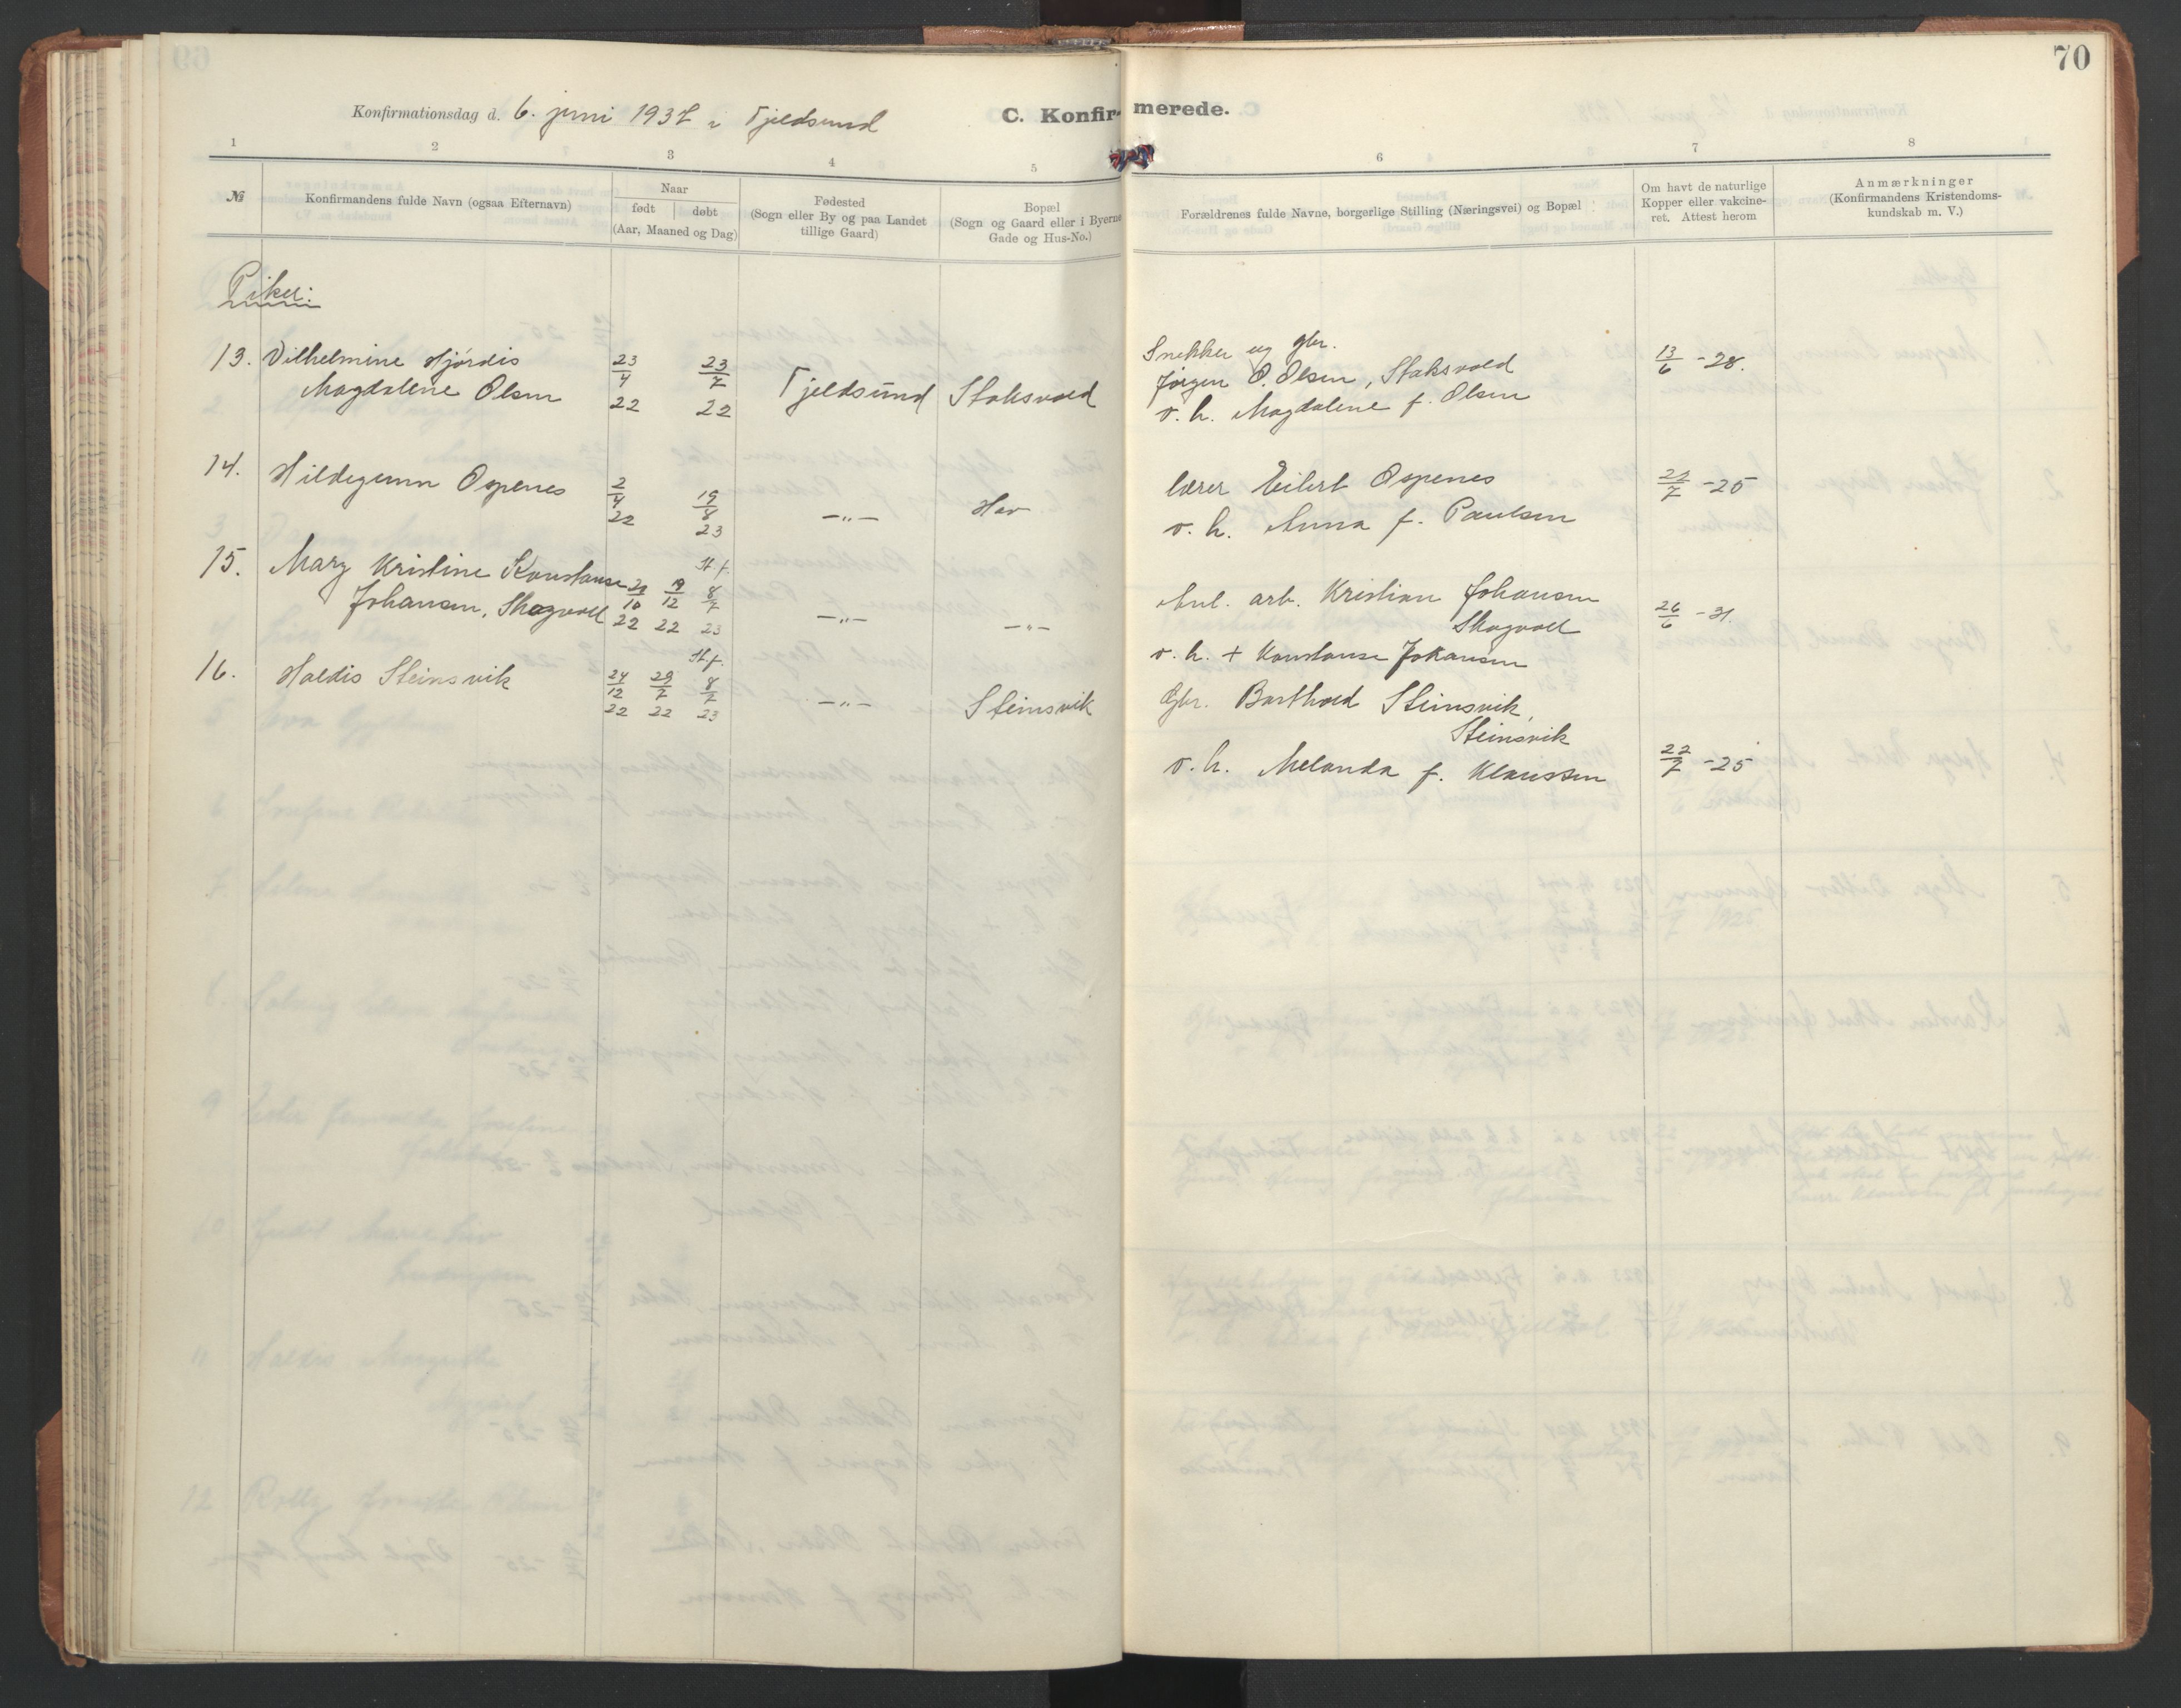 70
Konfirmationsdag d. 6. juni 1937 i Tjeldsund
C. Konfirmerede.
1 2 3 4 5 6 7 8
№
Konfirmandens fulde Navn (ogsaa Efternavn)
Naar
født døbt
(Aar, Maaned og Dag)
Fødested
(Sogn eller By og paa Landet
tillige Gaard)
Bopæl
(Sogn og Gaard eller i Byerne
Gade og Hus-No.)
Forældrenes fulde Navne, borgerlige Stilling (Næringsvei) og Bopæl
Om havt de naturlige
Kopper eller vakcine-
ret. Attest herom
Anmærkninger
(Konfirmandens Kristendoms-
kundskab m. V.)
Piker:
13. Vilhelmine Hjørdis
Magdalene Olsen
23/4 22
23/7 22
Tjeldsund
Staksvold
Snekker og gbr.
Jørgen O. Olsen, Staksvold
v. h. Magdalene f. Olsen
13/6 -28.
14. Hildegunn Ospenes
2/4 22
19/8 23
-"-
Hov
lærer Eilert Ospenes
v. h. Anna f. Paulsen
-25
15. Mary Kristine Konstanse
Johansen, Skogvoll
10 22
19/12 22
St. f.
8/7 23
-"-
-"-
Anl. arb. Kristian Johansen
Skogvoll
v. h. + Konstanse Johansen
26/6 -31.
16. Haldis Steinsvik
24/12 22
29/7 22
St. f.
8/7 23
-"-
Steinsvik
Gbr. Barthold Steinsvik,
Steinsvik
v. h. Melanda f. Klaussen
22/7 -25